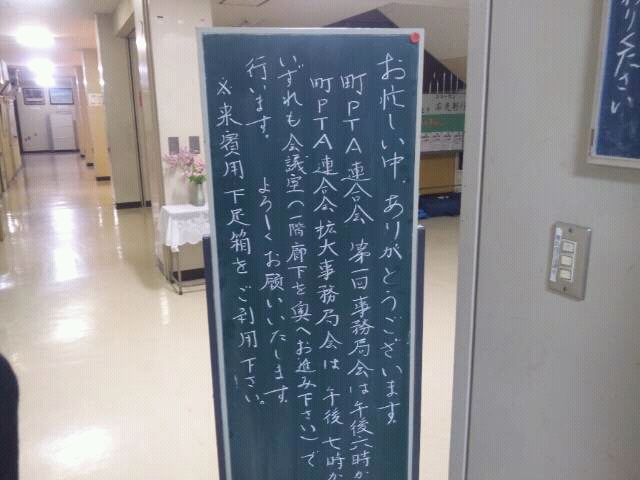 お忙しい中、ありがとうございます。
町PTA連合会 第一回事務局会は午後六時か
町PTA連合会拡大事務局会は 午後 七時か
いずれも会議室(一階廊下を奥へお進み下さい)で
行います。 よろしくお願いいたします。
※来賓用下足箱をご利用下さい。
りください